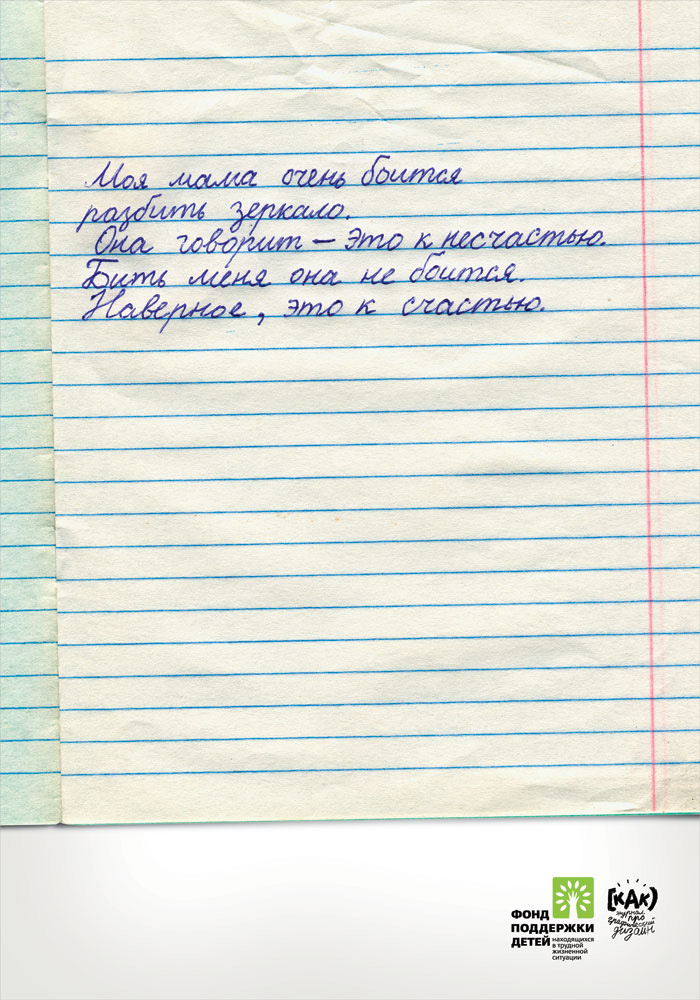 Моя мама очень боится
разбить зеркало.
Она говорит – это к несчастью.
Бить меня она не боится.
Наверное, это к счастью.
ФОНД
ПОДДЕРЖКИ
ДЕТЕЙ
находящихся
в трудной
жизненной
ситуации
[кАк)
журнал
про
графический
дизайн